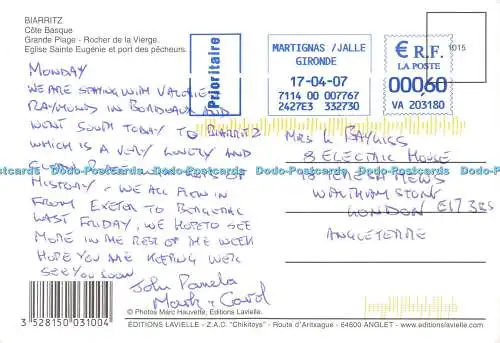 BIARRITZ
Côte Basque
Grande Plage - Rocher de la Vierge.
Eglise Sainte Eugénie et port des pêcheurs.
Prioritaire
MARTIGNAS /JALLE
GIRONDE
17-04-07
7114 00 007767
2427E3 332730
€ R.F.
LA POSTE
00060
VA 203180
1015
MONDAY
WE ARE STAYING WITH VALERIE
RAYMOND IN BORDEAUX AND
WENT SOUTH TODAY TO BIARRITZ
WHICH IS A VERY LOVELY AND
HISTORY - WE ALL FLEW IN
FROM EXETER TO BERGERAC
LAST FRIDAY, WE HOPE TO SEE
MORE IN THE REST OF THE WEEK
HOPE YOU ARE KEEPING WELL
SEE YOU SOON
John Pamela
Mark + Carol
MRS L BAYLISS
8 ELECTRIC HOUSE
18 MEWS
WALTHAMSTOW
LONDON E17 3BS
ANGLETERRE
Dodo-Postcards Dodo-Postcards Dodo-Postcards Dodo-Postcards Dodo-Postcards
3 528150 031004
© Photos Marc Hauvette, Editions Lavielle.
EDITIONS LAVIELLE - Z.A.C. "Chikitoys" - Route d'Aritxague - 64600 ANGLET - www.editionslavielle.com